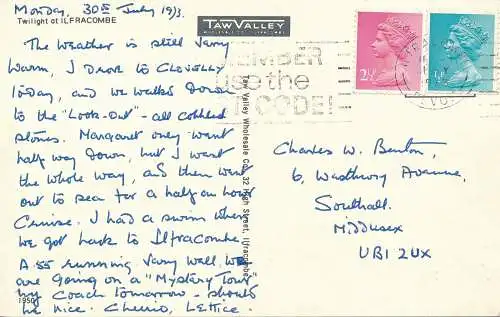 Monday, 30th July 1973.
Twilight at ILFRACOMBE
TAW VALLEY
WHOLESALE CO. ILFRACOMBE
The Weather is still Very
Warm, I Drove to CLOVELLY
Today, and we walked Down
to the "Look-Out" - all cobbled
stones. Margaret only went
half way Down, but I went
the whole way, and then went
out to sea for a half an hour
Cruise. I had a swim when
we got back to Ilfracombe.
A 55 running Very well. We
are going on a "Mystery Tour"
by Coach tomorrow - should
be nice. Cheerio, Lettice.
1950
Taw Valley Wholesale Co., 32 High Street, Ilfracombe
EMBER
use the
CODE!
2½P
½P
Charles W. Benton,
6, Avenue,
Southall.
Middusex
UB1 2UX